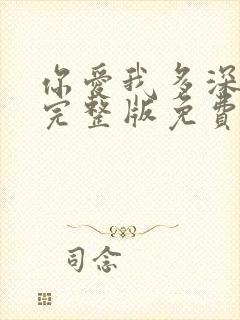 你愛我多深
完整版免費
司念